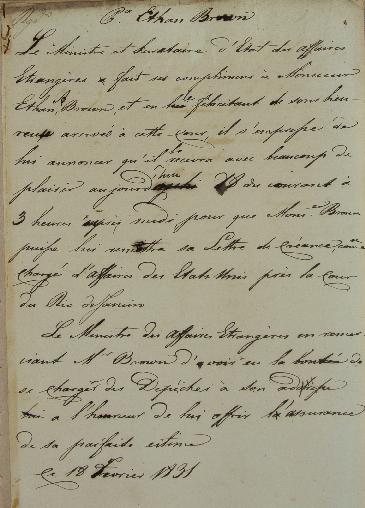 Pa. Ethan Brown
Le Ministre et Secretaire d'Etat des Affaires
Etrangères fait ses compliments à Monsieur
Ethan A. Brown, et en le félicitant de son heu-
reuse arrivée à cette Cour, il s'empresse de
lui annoncer qu'il le recevra avec beaucoup de
plaisir aujourd'hui 18 du courant à
3 heures après midi pour que Monsr. Brown
puisse lui remettre sa Lettre de Créance, comme
Chargé d'Affaires des Etats Unis près la Cour
du Rio de Janeiro
Le Ministre des Affaires Etrangères en remer-
ciant Mr. Brown d'avoir eu la bonté de
se charger des Dépêches à son adresse
a l'honneur de lui offrir l'assurance
de sa parfaite estime
Ce 18 Fevrier 1831